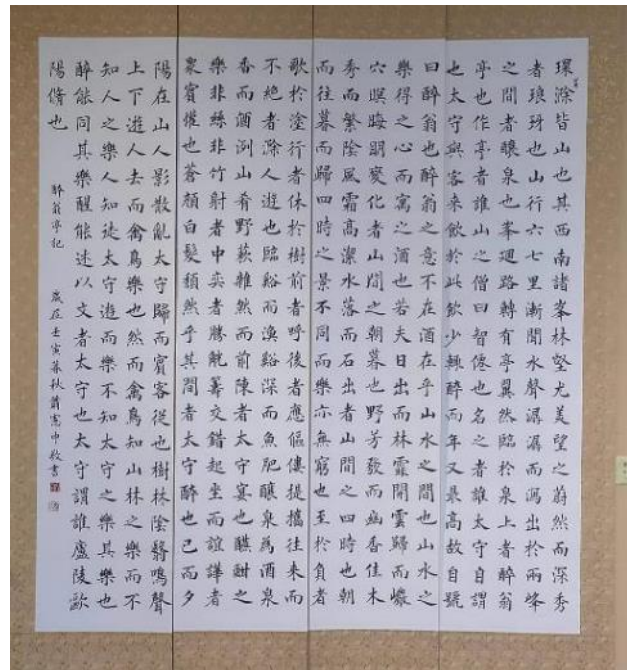 環滁皆山也其西南諸峯林壑尤美望之蔚然而深秀
者琅玡也山行六七里漸聞水聲潺潺而瀉出於兩峰
之間者釀泉也峯迴路轉有亭翼然臨於泉上者醉翁
亭也作亭者誰山之僧曰智僊也名之者誰太守自謂
也太守與客來飲於此飲少輒醉而年又最高故自號
曰醉翁也醉翁之意不在酒在乎山水之間也山水之
樂得之心而寓之酒也若夫日出而林霏開雲歸而巖
穴暝晦朙變化者山間之朝暮也野芳發而幽香佳木
秀而繁陰風霜高潔水落而石出者山間之四時也朝
而往暮而歸四時之景不同而樂亦無窮也至於負者
歌於塗行者休於樹前者呼後者應傴僂提攜往來而
不絕者滁人遊也臨谿而漁谿深而魚肥釀泉為酒泉
香而酒洌山肴野蔌雜然而前陳者太守宴也醼酣之
樂非絲非竹射者中奕者勝觥籌交錯起坐而諠譁者
衆賓懽也蒼顏白髮頹然乎其間者太守醉也已而夕
陽在山人影散亂太守歸而賓客從也樹林陰翳鳴聲
上下遊人去而禽鳥樂也然而禽鳥知山林之樂而不
知人之樂人知從太守遊而樂不知太守之樂其樂也
醉能同其樂醒能述以文者太守也太守謂誰廬陵歐
陽脩也
醉翁亭記
歲在壬寅暮秋憲中敬書